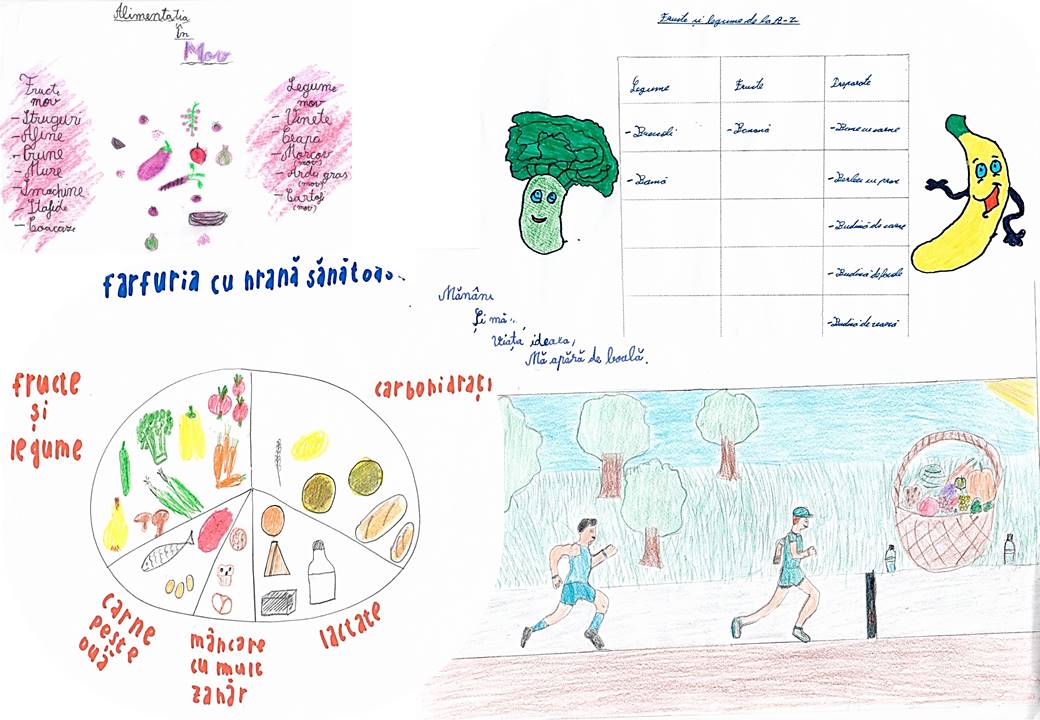 Alimentatia
în
Mov
Fructe
mov
- Struguri
- Afine
- Prune
- Mure
- Smochine
- Stafide
- Coacăze
Legume
mov
- Vinete
- Ceapă
- Morcov
(mov)
- Ardei gras
(mov)
- Cartofi
(mov)
Fructe și legume de la A-Z
Legume Fructe Preparate
- Broccoli - Banană
- Bamă
farfuria cu hrană sănătoas
Mănânc
Și mă
Viața ideala,
Mă apără de boală.
fructe
și
legume
carbohidrați
carne
pește
ouă
mâncare
cu mult
zahăr
lactate